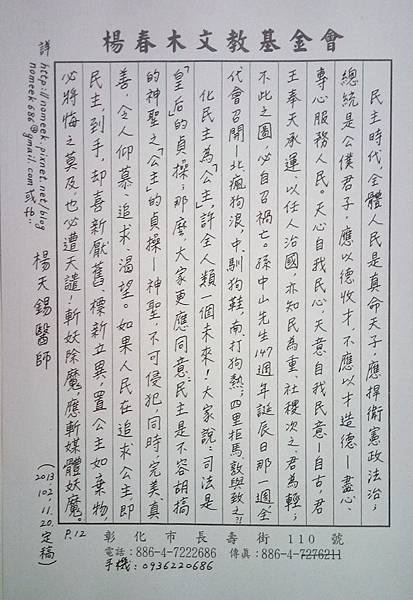 楊春木文教基金會
民主時代，全體人民是真命天子，應捍衛憲政法治；
總統是公僕君子，應以德收才，不應以才造德—盡心
專心服務人民。天心自我民心，天意自我民意—自古，君
王奉天承運，以任人治國，亦知民為重，社稷次之君為輕；
不此之圖，必自召禍亡。孫中山先生147週年誕辰日那一週，全
代會召開—北，瘋狗浪，中，馴狗鞋，南，打狗熱；四里拒馬敦與致之?!
化民主為「公主」，許全人類一個未來！大家說：司法是
「皇后」的貞操；那麼，大家更應同意：民主是不容胡搞
的神聖之「公主」的貞操—神聖，不可侵犯，同時，完美、真
善，令人仰慕、追求、渴望。如果人民在追求公主，即
民主，到手，却喜新厭舊、標新立異，置公主如棄物，
必將悔之莫及，也必遭天譴！斬妖除魔，應斬媒體妖魔。
P.12
(2013 102.11.20.定稿)
楊天錫醫師
詳 http://nomeek.pixnet.net/blog
nomeek686@gmail.com或fb..
彰化市長壽街110號
電話：886-4-7222686 傳真：886-4-7276211
手機：0936220686